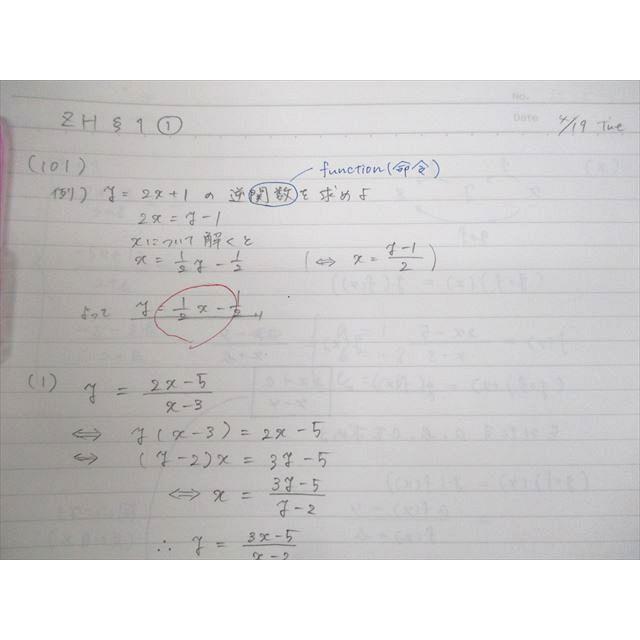 No.
Date 4/19 Tue
ZH § 1 ①
(101)
function(命令)
例) y = 2x+1 の 逆関数を求めよ
2x = y-1
xについて解くと
x = 1/2 y - 1/2 (⇔ x = y-1/2)
よって y = 1/2 x - 1/2
(1) y = 2x-5/x-3
⇔ y(x-3) = 2x-5
⇔ (y-2)x = 3y-5
⇔ x = 3y-5/y-2
∴ y = 3x-5/x-2